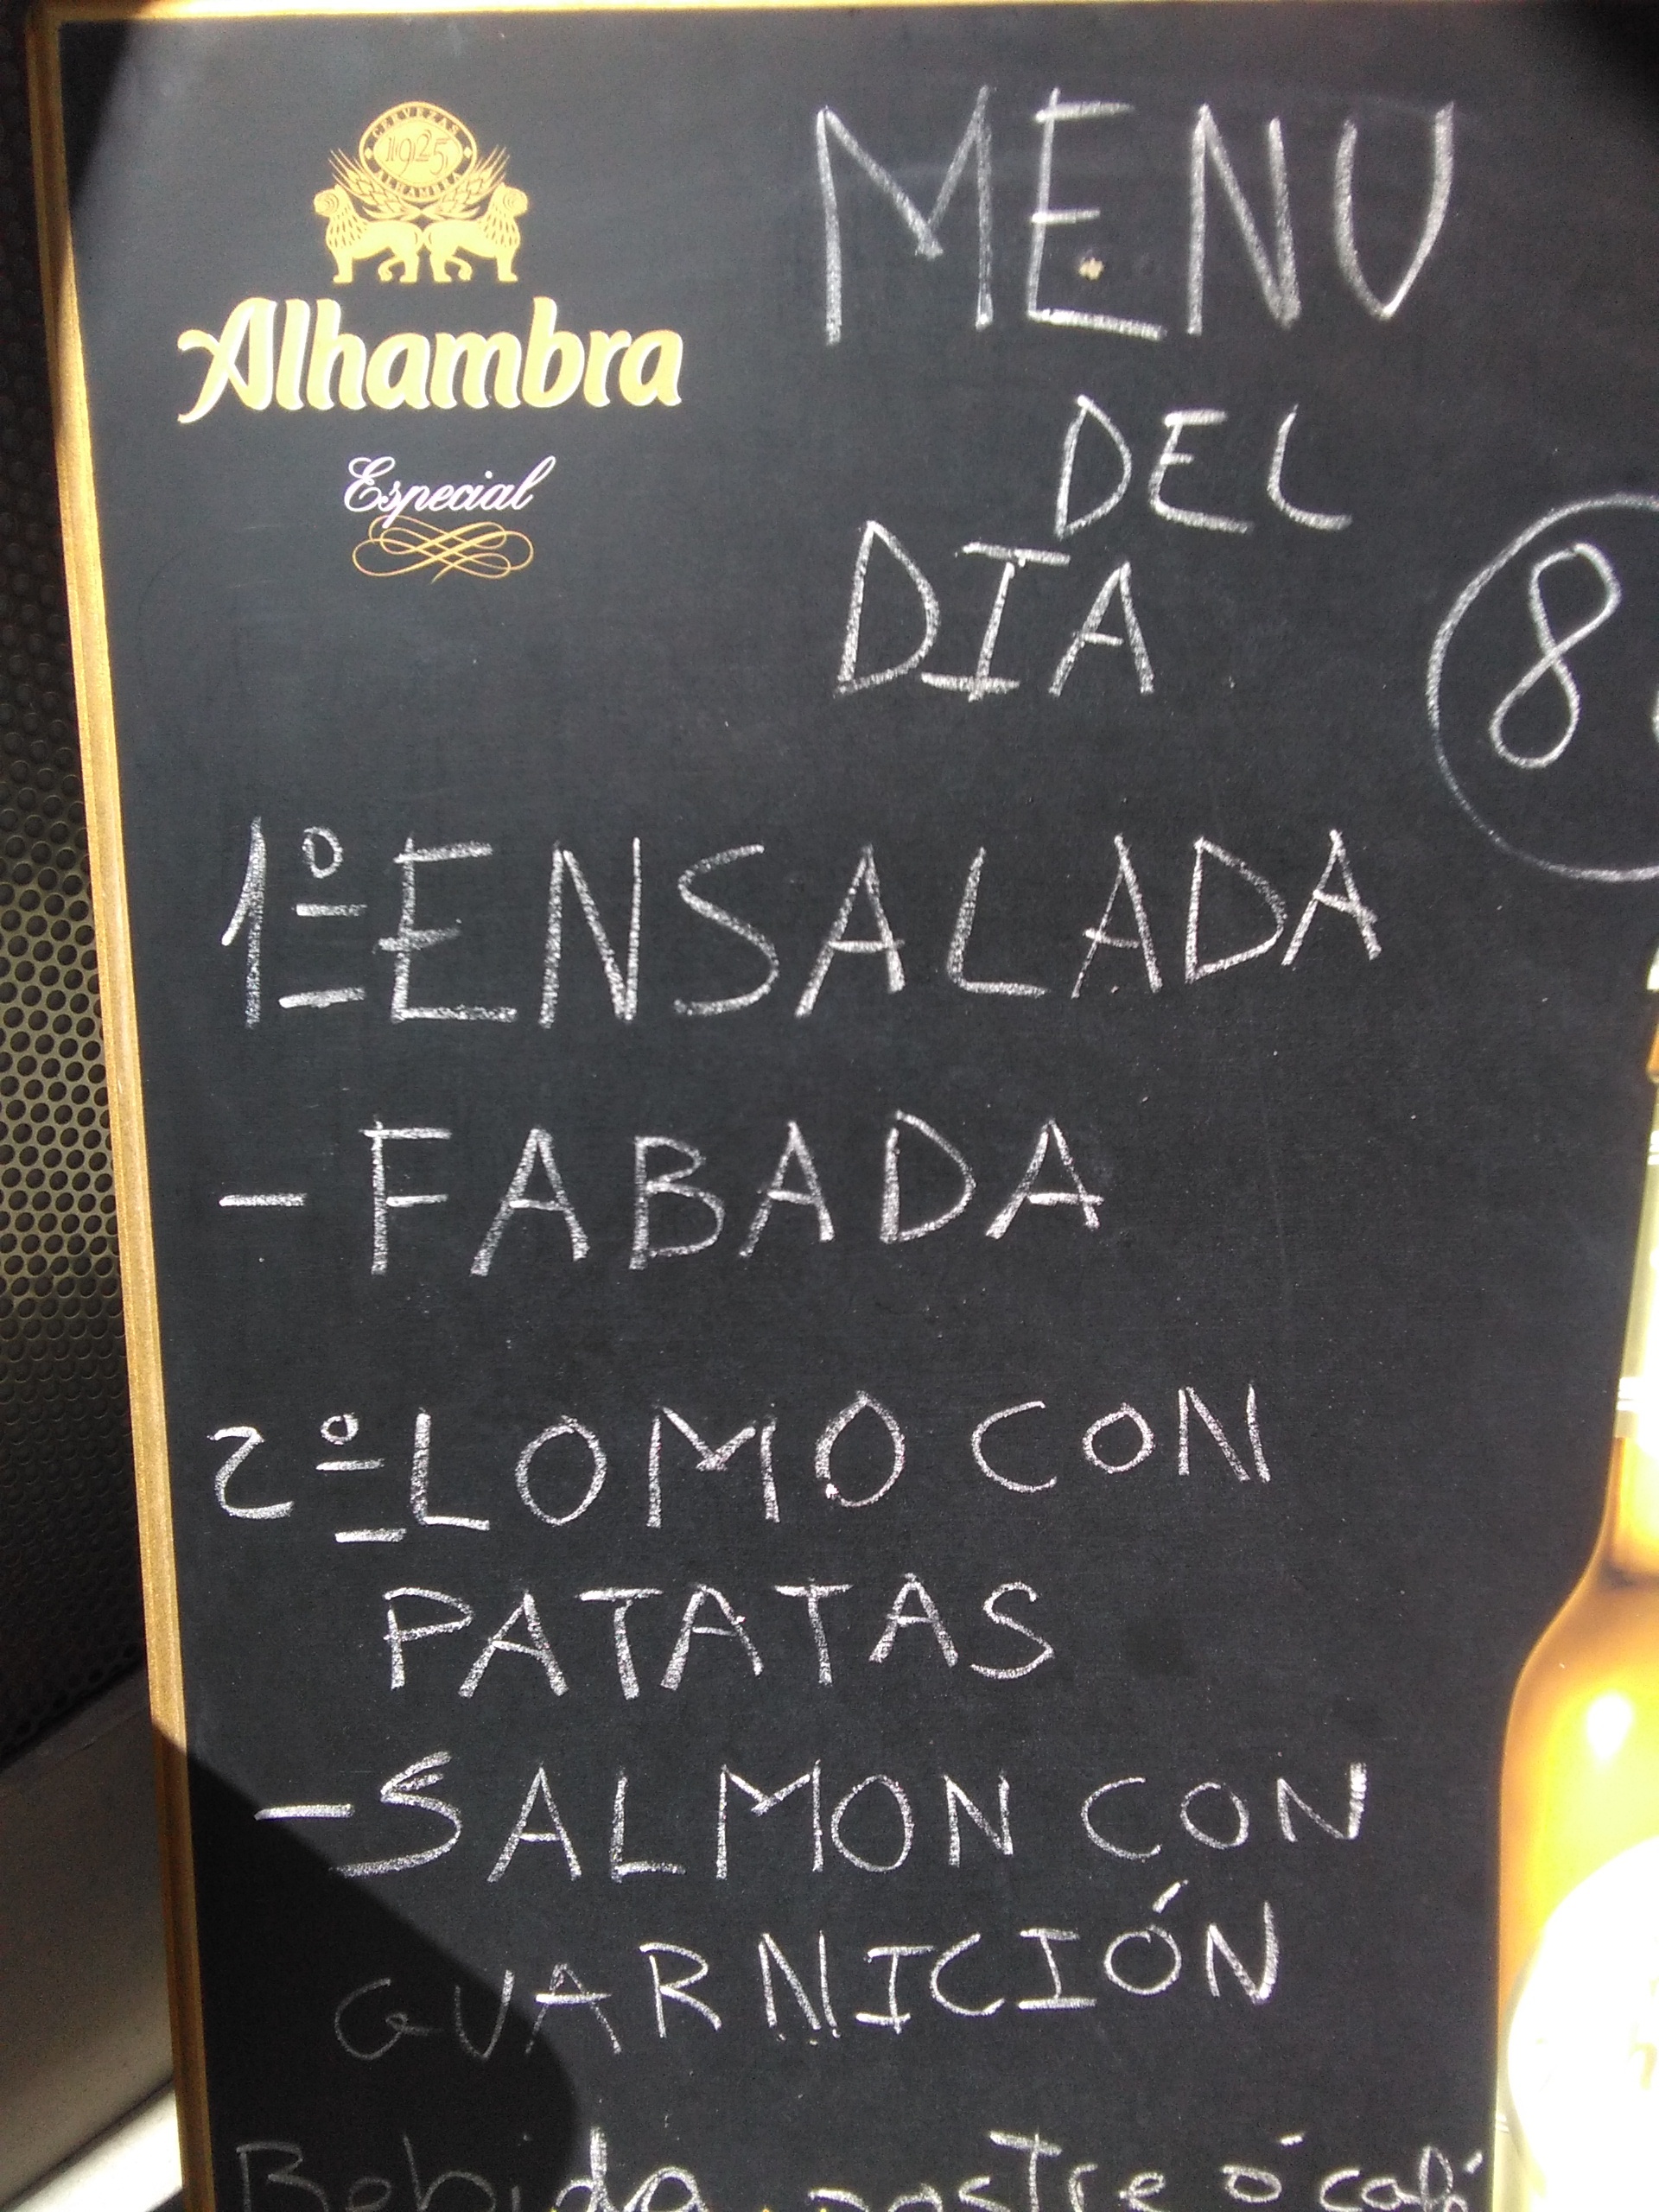 CERVEZAS
1925
ALHAMBRA
Alhambra
Especial
MENU
DEL
DIA
8
1º ENSALADA
- FABADA
2º LOMO CON
PATATAS
- SALMON CON
GUARNICIÓN
Bebida, postre ó café